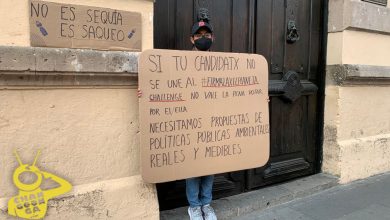 NO ES SEQUÍA
ES SAQUEO
SI TU CANDIDATX NO
SE UNE AL #FIRMAXELPLANETA
CHALLENGE NO VALE LA PENA VOTAR
POR EL/ELLA
NECESITAMOS PROPUESTAS DE
POLÍTICAS PÚBLICAS AMBIENTALES
REALES Y MEDIBLES
CHANGOONGA